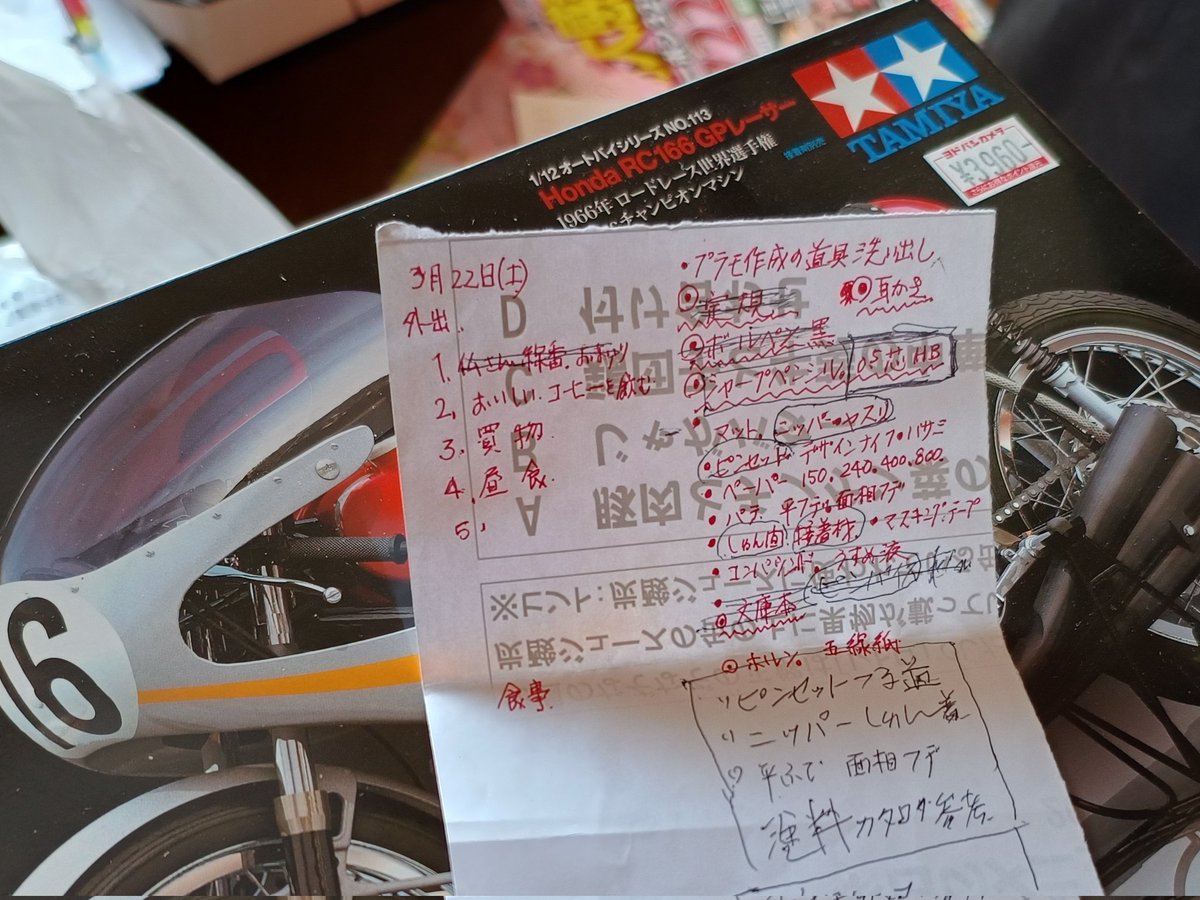 TAMIYA
ヨドバシカメラ
¥3,960-
1/12 オートバイシリーズ NO.113
Honda RC166 GPレーサー
1966年 ロードレース世界選手権
チャンピオンマシン
6
3月22日(土)
外出
1.
2. おいしいコーヒーを飲む
3. 買物
4. 昼食
5.
食事
・プラモ作成の道具洗い出し
定規 耳かき
ボールペン 黒
シャープペンシル。05芯HB
・マット。ニッパー・ヤスリ
・ピンセット デザインナイフ・ハサミ
・ペーパー 150.240.400.800.
・パテ. 平フデ 面相フデ
・しゅん間 接着材 ・マスキングテープ
・コンパウンド. うすめ液
文庫本
ホルン 五線紙
ピンセット
ニッパー しゅん着
平ふで 面相フデ
塗料 カタログ参考